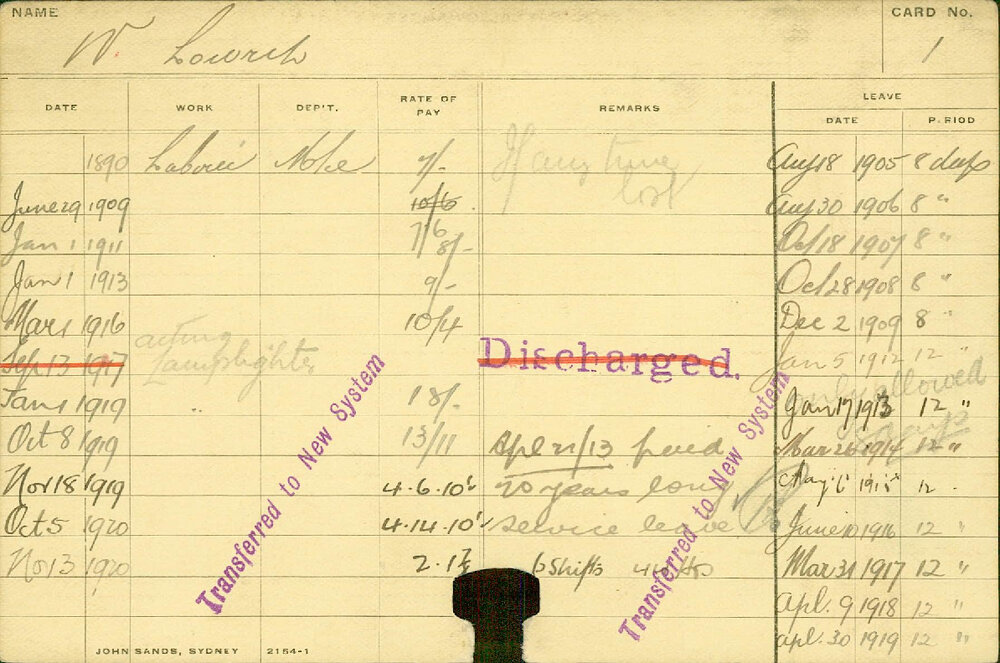 NAME
CARD No.
W Lowrch
1
DATE WORK DEP'T. RATE OF PAY REMARKS LEAVE
DATE PERIOD
1890 Laborer 7/- If any time Aug 18 1905 8 days
lost
June 29 1909 10/6 Aug 30 1906 8 "
7/6
Jan 1 1911 8/- Oct 18 1907 8 "
Jan 1 1913 9/- Oct 28 1908 8 "
Mar 1 1916 10/4 Dec 2 1909 8 "
acting
Sep 13 1917 Lamplighter Discharged. Jan 5 1912 12 "
only allowed
Jan 1 1919 Jan 17 1913 12 "
days
Oct 8 1919 13/11 Apl 21/13 paid Mar 26 1914 12 "
Nov 18 1919 4.6.10½ 20 years long May 6 1915 12 .
Oct 5 1920 4.14.10½ service leave June 10 1916 12 "
Nov 3 1920 2.1½ 6 Shifts 44 Hrs Mar 31 1917 12 "
Apl. 9 1918 12 "
Apl. 30 1919 12 "
Transferred to New System
Transferred to New System
JOHN SANDS, SYDNEY 2154-1